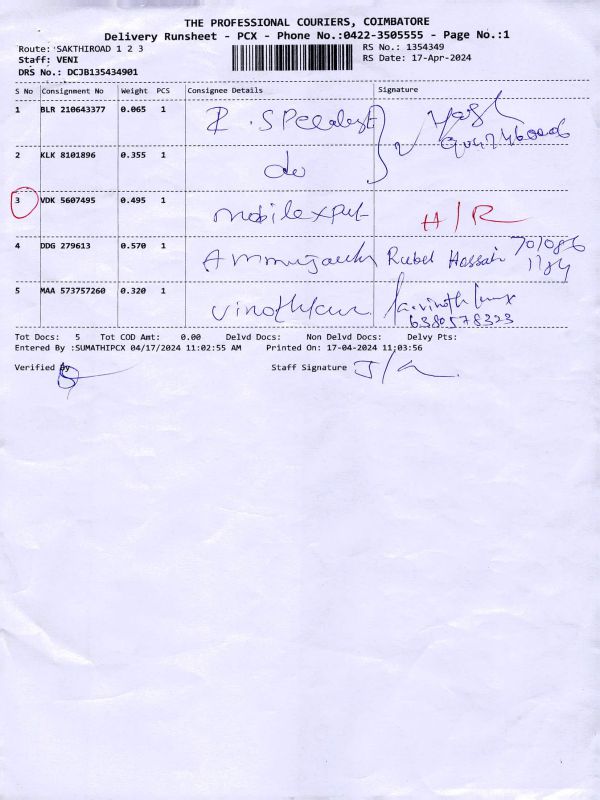 THE PROFESSIONAL COURIERS, COIMBATORE
Delivery Runsheet - PCX - Phone No.:0422-3505555 - Page No.:1
Route: SAKTHIROAD 1 2 3
RS No.: 1354349
Staff: VENI
RS Date: 17-Apr-2024
DRS No.: DCJB135434901
S No Consignment No Weight PCS Consignee Details Signature
1 BLR 210643377 0.065 1
2 KLK 8101896 0.355 1 do
3 VDK 5607495 0.495 1 H/R
4 DDG 279613 0.570 1 Rubel Hossain
5 MAA 573757260 0.320 1
6380578323
Tot Docs: 5 Tot COD Amt: 0.00 Delvd Docs: Non Delvd Docs: Delvy Pts:
Entered By :SUMATHIPCX 04/17/2024 11:02:55 AM Printed On: 17-04-2024 11:03:56
Verified By Staff Signature